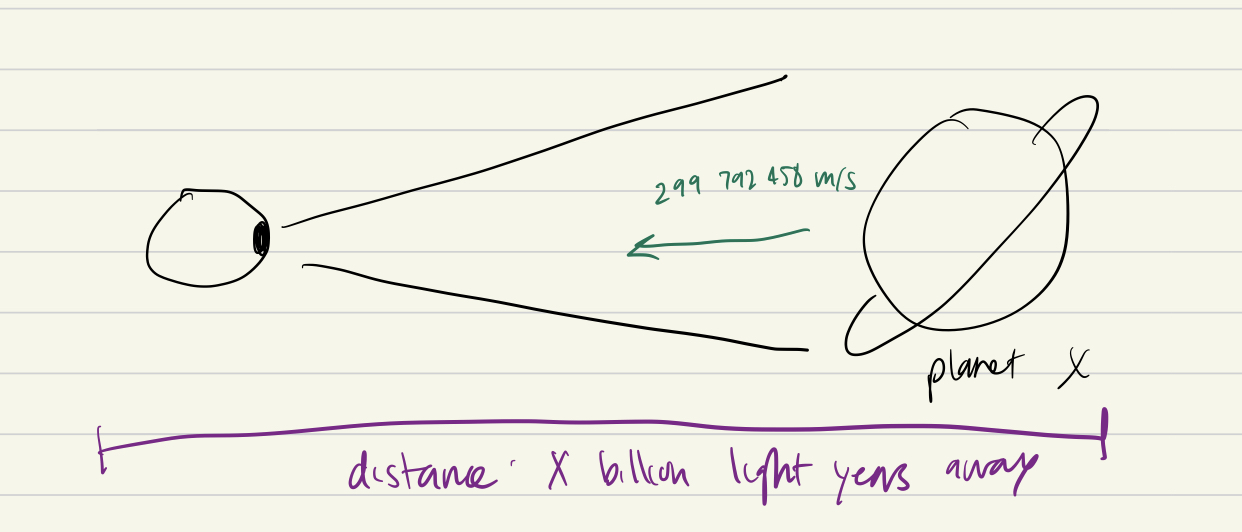 299 792 458 m/s
planet X
distance: X billion light years away